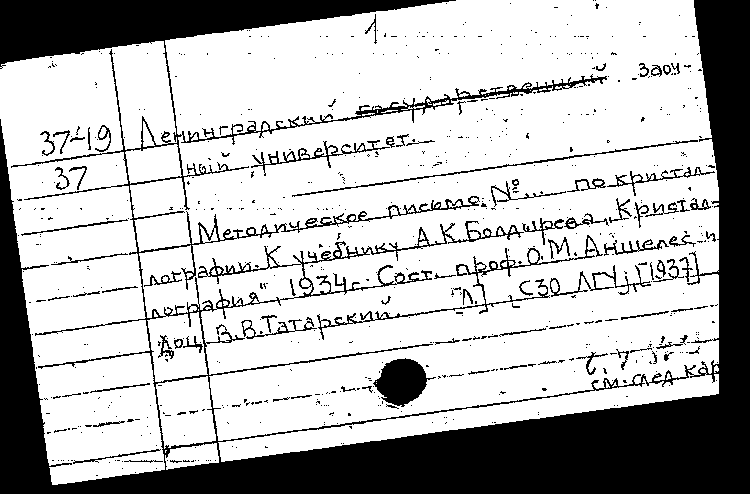 1.
37-19 Ленинградский государственный Заоч-
37 ный университет.
Методическое письмо. № ... по кристал-
лографии. К учебнику А.К.Болдырева „Кристал-
лография", 1934г. Сост. проф. О.М. Аншелес и
доц. В.В.Татарский. [Л.], СЗО ЛГУ, [1937]
см. след кар